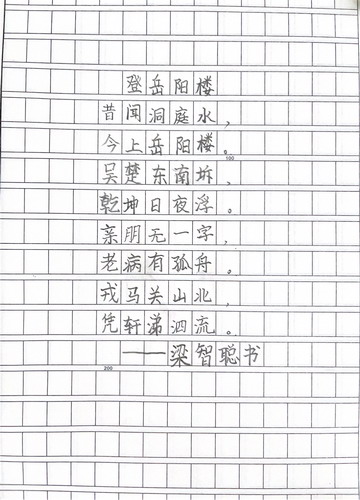 登岳阳楼
昔闻洞庭水，
今上岳阳楼。
100
吴楚东南坼、
乾坤日夜浮。
亲朋无一字，
老病有孤舟。
戎马关山北，
凭轩涕泗流。
——梁智聪书
200